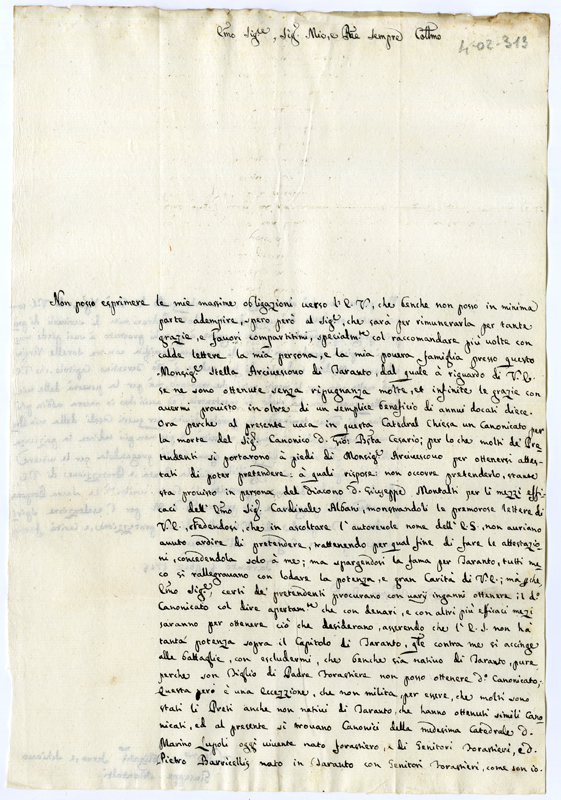 4-02-313
Emo Sigre, Sigr Mio, e Pne sempre Collmo
Non posso esprimere le mie massime obligazioni verso l'E. V., che benche non posso in minima
parte adempire, spero però al Sigre, che sarà per rimunerarla per tante
grazie, e favori compartitimi, specialmte col raccomandare più volte con
calde lettere la mia persona, e la mia povera famiglia presso questo
Monsigr Stella Arcivescovo di Taranto, dal quale à riguardo di V. E.
se ne sono ottenute senza ripugnanza molte, et infinite le grazie con
avermi provisto in oltre di un semplice beneficio di annui docati diece.
Ora perche al presente vaca in questa Catedral Chiesa un Canonicato per
la morte del Sigr Canonico D. Gio: Bsta Cesario; per lo che molti de' Pre-
tendenti si portarono à piedi di Monsigr Arcivescovo per ottenersi attes-
tati di poter pretendere: à quali rispose: non occorre pretenderlo, stante
sta provisto in persona del diacono D. Giuseppe Montalti per li mezzi effi-
caci dell' Emo Sigr Cardinale Albani, monstrandoli le premorose lettere di
V. E., credendosi, che in ascoltare l'autorevole nome dell' E. S., non avriano
avuto ardire di pretendere, trattenendo per qual fine di fare le attestazio-
ni, concedendola solo à me; ma spargendosi la fama per Taranto, tutti me-
co si rallegravano con lodare la potenza, e gran Carità di V. E.; mà perche,
Emo Sigre, certi de' pretendenti procurano con varij inganni ottenere il do
Canonicato col dire apertamte che con denari, e con altri più efficaci mezi
saranno per ottenere ciò che desiderano, asserendo che l' E. S. non hà
tanta potenza sopra il Capitolo di Taranto, qle contra me si accinge
alle battaglie, con escludermi, che benche sia nativo di Taranto, pure
perche son Figlio di Padre Forastiere non posso ottenere do Canonicato;
Questa però è una eccezzione, che non milita, per essere, che molti sono
stati li Preti anche non nativi di Taranto, che hanno ottenuti simili Cano-
nicati, ed al presente si trovano Canonici della medesima Catedrale D.
Marino Lupoli oggi vivente nato forastiero, e di Genitori Forastieri, e D.
Pietro Barricelli, nato in Taranto con Genitori Forastieri, come son io.